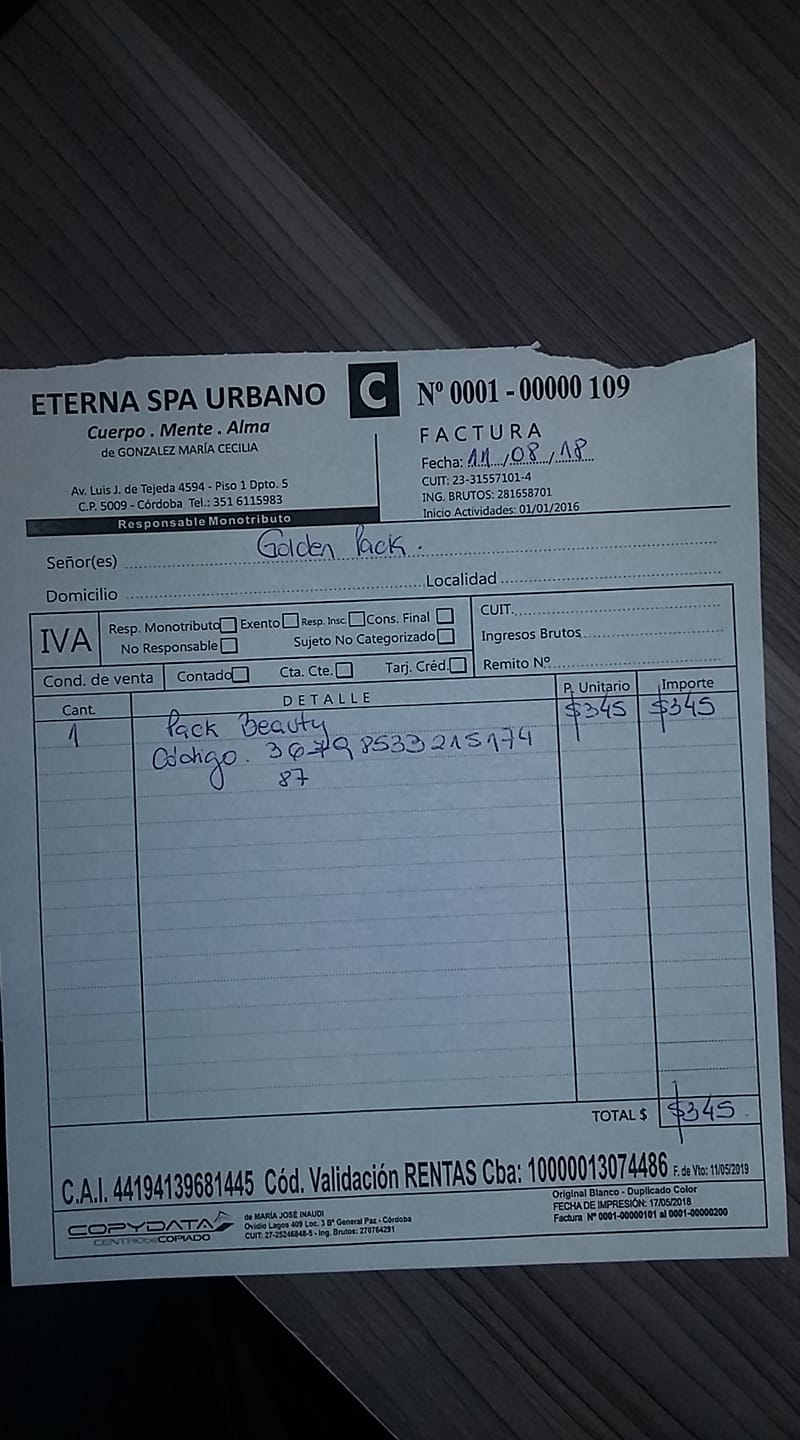 ETERNA SPA URBANO
Cuerpo . Mente . Alma
de GONZALEZ MARÍA CECILIA
Av. Luis J. de Tejeda 4594 - Piso 1 Dpto. 5
C.P. 5009 - Córdoba Tel.: 351 6115983
Responsable Monotributo
C
Nº 0001 - 00000 109
FACTURA
Fecha: 11/08/18
CUIT: 23-31557101-4
ING. BRUTOS: 281658701
Inicio Actividades: 01/01/2016
Señor(es) Golden Pack.
Domicilio Localidad
IVA
Resp. Monotributo Exento Resp. Insc. Cons. Final
No Responsable Sujeto No Categorizado
CUIT.
Ingresos Brutos
Cond. de venta Contado Cta. Cte. Tarj. Créd. Remito Nº
Cant. DETALLE P. Unitario Importe
1 Pack Beauty $345 $345
Código. 36798533215174
87
TOTAL $ $345.
C.A.I. 44194139681445 Cód. Validación RENTAS Cba: 10000013074486 F. de Vto: 11/05/2019
COPYDATA
CENTRO DE COPIADO
de MARÍA JOSÉ INAUDI
Ovidio Lagos 409 Loc. 3 Bº General Paz - Córdoba
CUIT: 27-25246848-5 - Ing. Brutos: 270764291
Original Blanco - Duplicado Color
FECHA DE IMPRESIÓN: 17/05/2018
Factura Nº 0001-00000101 al 0001-00000200